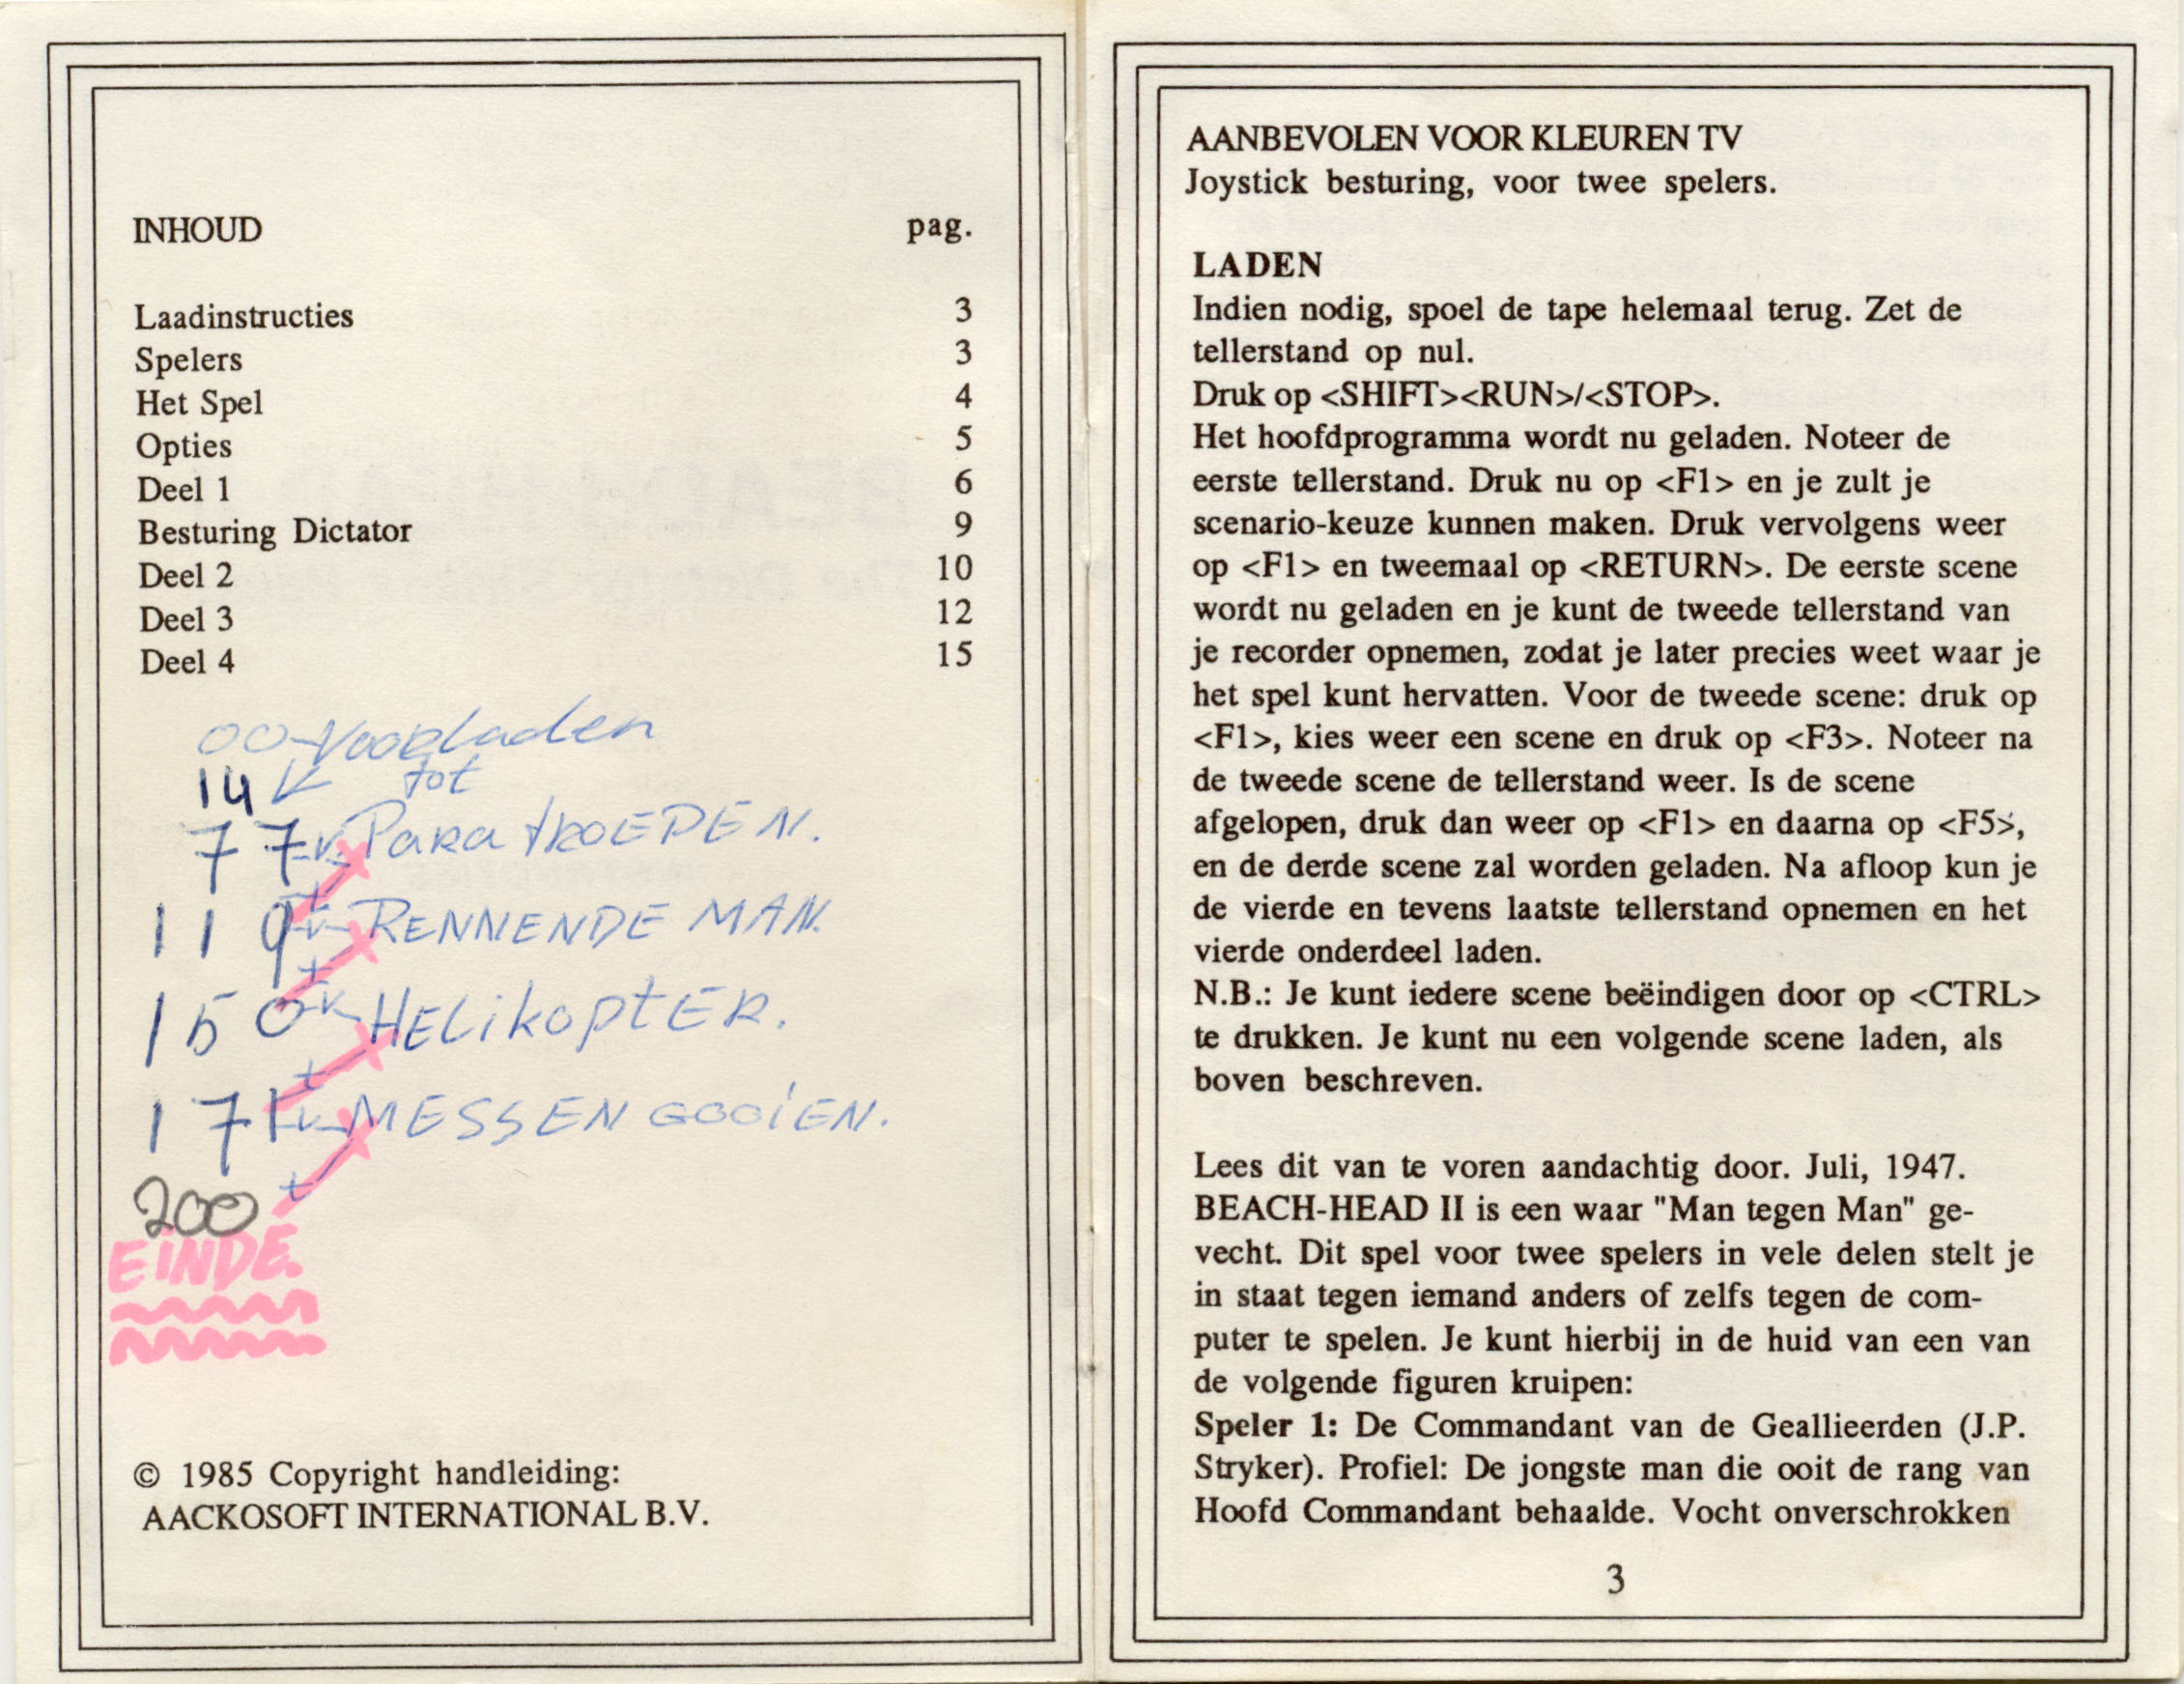 INHOUD pag.
Laadinstructies 3
Spelers 3
Het Spel 4
Opties 5
Deel 1 6
Besturing Dictator 9
Deel 2 10
Deel 3 12
Deel 4 15
00 Voorladen
14 tot
77 PARA TROEPEN.
119 RENNENDE MAN.
150 HELIKOPTER.
171 MESSEN GOOIEN.
200
EINDE.
© 1985 Copyright handleiding:
AACKOSOFT INTERNATIONAL B.V.
AANBEVOLEN VOOR KLEUREN TV
Joystick besturing, voor twee spelers.
LADEN
Indien nodig, spoel de tape helemaal terug. Zet de
tellerstand op nul.
Druk op <SHIFT><RUN>/<STOP>.
Het hoofdprogramma wordt nu geladen. Noteer de
eerste tellerstand. Druk nu op <F1> en je zult je
scenario-keuze kunnen maken. Druk vervolgens weer
op <F1> en tweemaal op <RETURN>. De eerste scene
wordt nu geladen en je kunt de tweede tellerstand van
je recorder opnemen, zodat je later precies weet waar je
het spel kunt hervatten. Voor de tweede scene: druk op
<F1>, kies weer een scene en druk op <F3>. Noteer na
de tweede scene de tellerstand weer. Is de scene
afgelopen, druk dan weer op <F1> en daarna op <F5>,
en de derde scene zal worden geladen. Na afloop kun je
de vierde en tevens laatste tellerstand opnemen en het
vierde onderdeel laden.
N.B.: Je kunt iedere scene beëindigen door op <CTRL>
te drukken. Je kunt nu een volgende scene laden, als
boven beschreven.
Lees dit van te voren aandachtig door. Juli, 1947.
BEACH-HEAD II is een waar "Man tegen Man" ge-
vecht. Dit spel voor twee spelers in vele delen stelt je
in staat tegen iemand anders of zelfs tegen de com-
puter te spelen. Je kunt hierbij in de huid van een van
de volgende figuren kruipen:
Speler 1: De Commandant van de Geallieerden (J.P.
Stryker). Profiel: De jongste man die ooit de rang van
Hoofd Commandant behaalde. Vocht onverschrokken
3